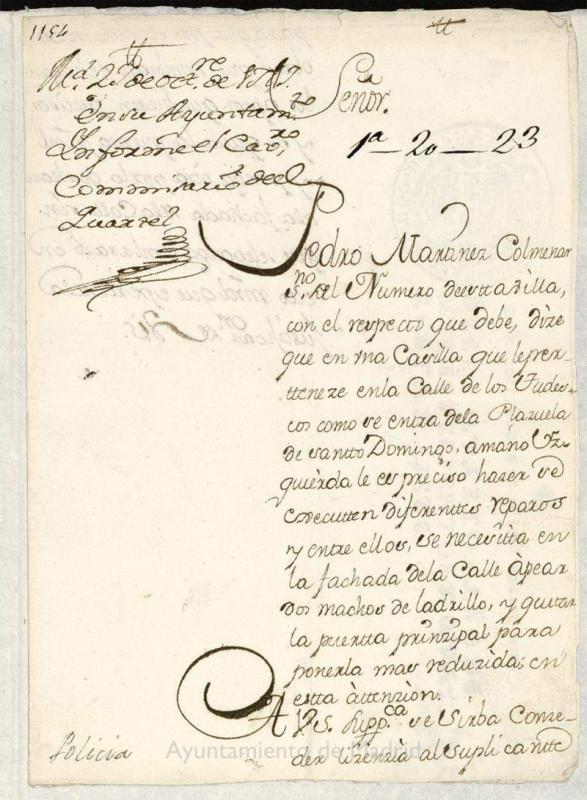 1154
Md 27 de octre de 1747.
En su Ayuntamto
Informe el Cavro
Commissario del
Quartel
Señor.
1a - 20 - 23
Pedro Martinez Colmenar
sno del Numero de esta villa,
con el respecto que debe, dize
que en vna Casilla que le per-
tteneze en la Calle de los Tudes-
cos como se entra de la Plazuela
de santto Domingo, a mano Yz-
quierda le es preciso hazer se
executten diferenttes reparos
y entre ellos, se necesitta en
la fachada de la Calle àpear
dos machos de ladrillo, y quitar
la puertta prinzipal para
ponerla mas reduzida; en
estta àttenzion.
A V.S. suppca se sirba Conze-
der lizenzia al suplicantte
Policia
Ayuntamiento de Madrid